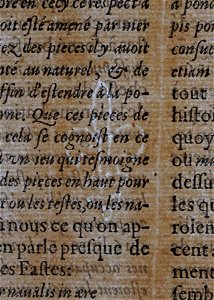 ore en cecy ce respect a
oit esté amené par mer
rez des pieces il y auoit
nte au naturel, & de
ffin d'estendre à la po-
rne. Que ces pieces de
cela se cognoist en ce
un ieu qui tesmoigne
des pieces en haut pour
t ou les testes, ou les na-
nous ce qu'on ap-
en parle presque de
es Fastes:
r naualis in ære
a pond
pis pon
consuet
etiam
tout
histor
quoy
ou m
dessu
les qu
rolent
cent
ment
sembl